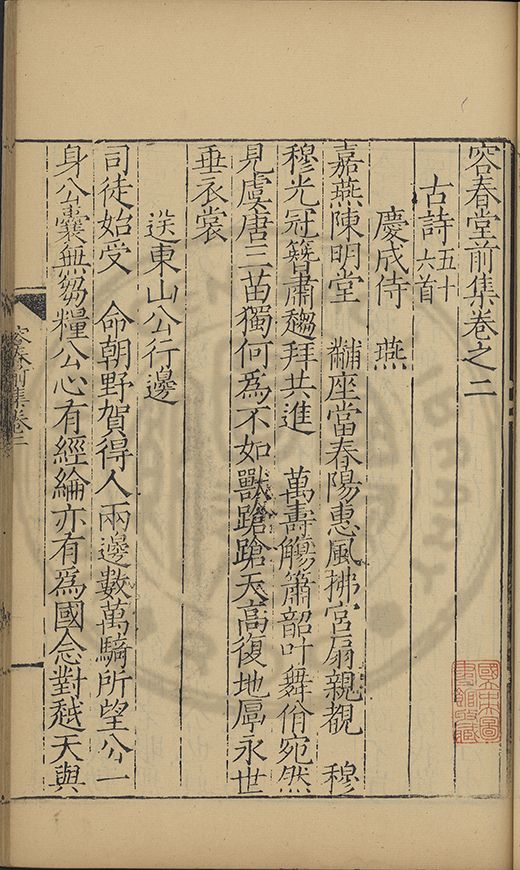 容春堂前集卷之二
古詩五十六首
慶成侍　燕
嘉燕陳明堂　黼座當春陽惠風拂宮扇親覩　穆
穆光冠簪肅趨拜共進　萬壽觴簫韶叶舞佾宛然
見虞唐三苗獨何爲不如獸蹌蹌天高復地厚永世
垂衣裳
送東山公行邊
司徒始受　命朝野賀得人兩邊數萬騎所望公一
身公橐無芻糧公心有經綸亦有爲國念對越天與
容春前集卷二
國立中央圖書館收藏